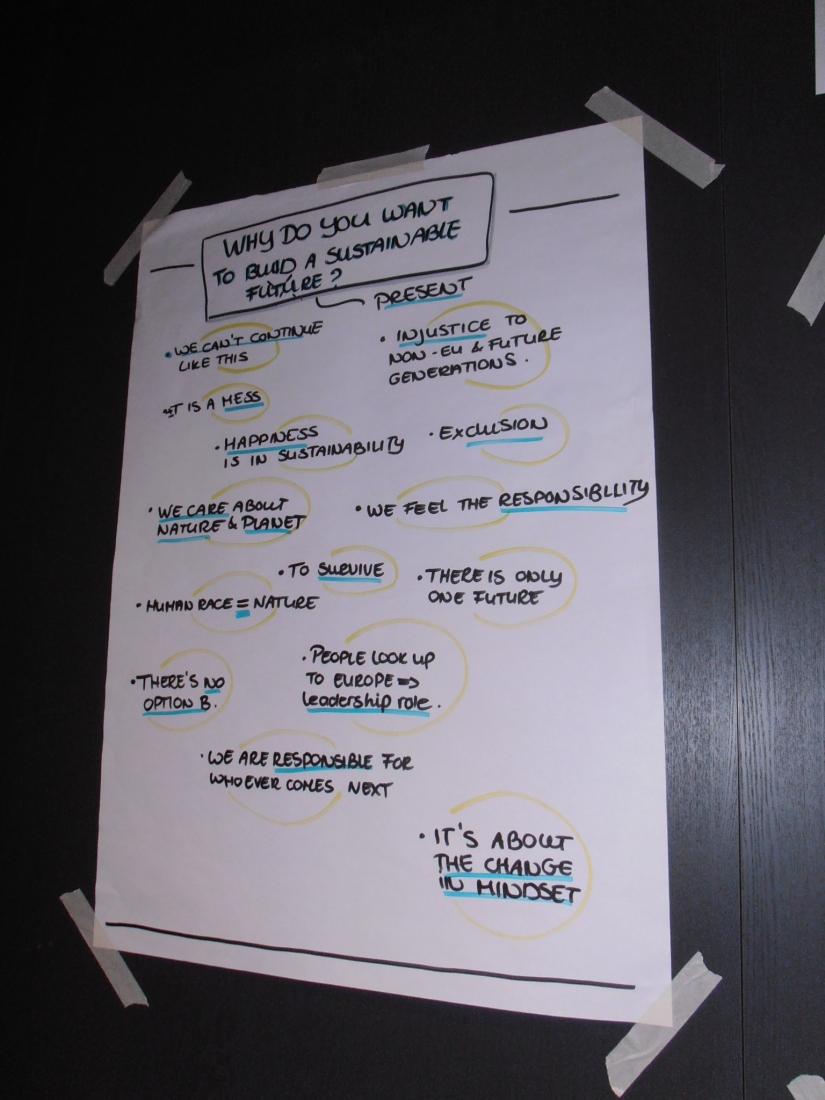 WHY DO YOU WANT
TO BUILD A SUSTAINABLE
FUTURE?
PRESENT
• WE CAN'T CONTINUE
LIKE THIS
• INJUSTICE TO
NON-EU & FUTURE
GENERATIONS.
• IT IS A MESS
• HAPPINESS
IS IN SUSTAINABILITY
• EXCLUSION
• WE CARE ABOUT
NATURE & PLANET
• WE FEEL THE RESPONSIBLLITY
• TO SURVIVE
• THERE IS ONLY
ONE FUTURE
• HUMAN RACE = NATURE
• THERE'S NO
OPTION B.
• PEOPLE LOOK UP
TO EUROPE =>
leadership role.
• WE ARE RESPONSIBLE FOR
WHOEVER COMES NEXT
• IT'S ABOUT
THE CHANGE
IN MINDSET